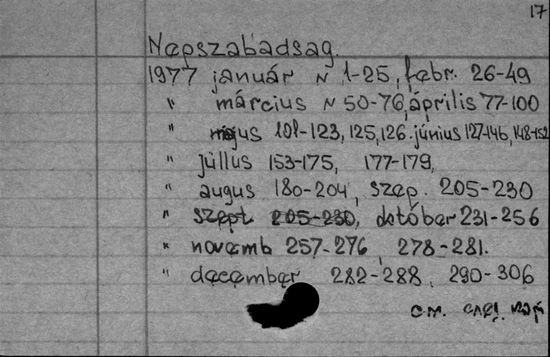 17
Nepszabadsag.
1977 január N 1-25, febr. 26-49
" március N 50-76, április 77-100
" május 101-123, 125, 126. június 127-146, 148-152
" júllus 153-175, 177-179,
" augus 180-204, szep. 205-230
" szept 205-230, október 231-256
" novemb 257-276, 278-281.
" december 282-288, 290-306